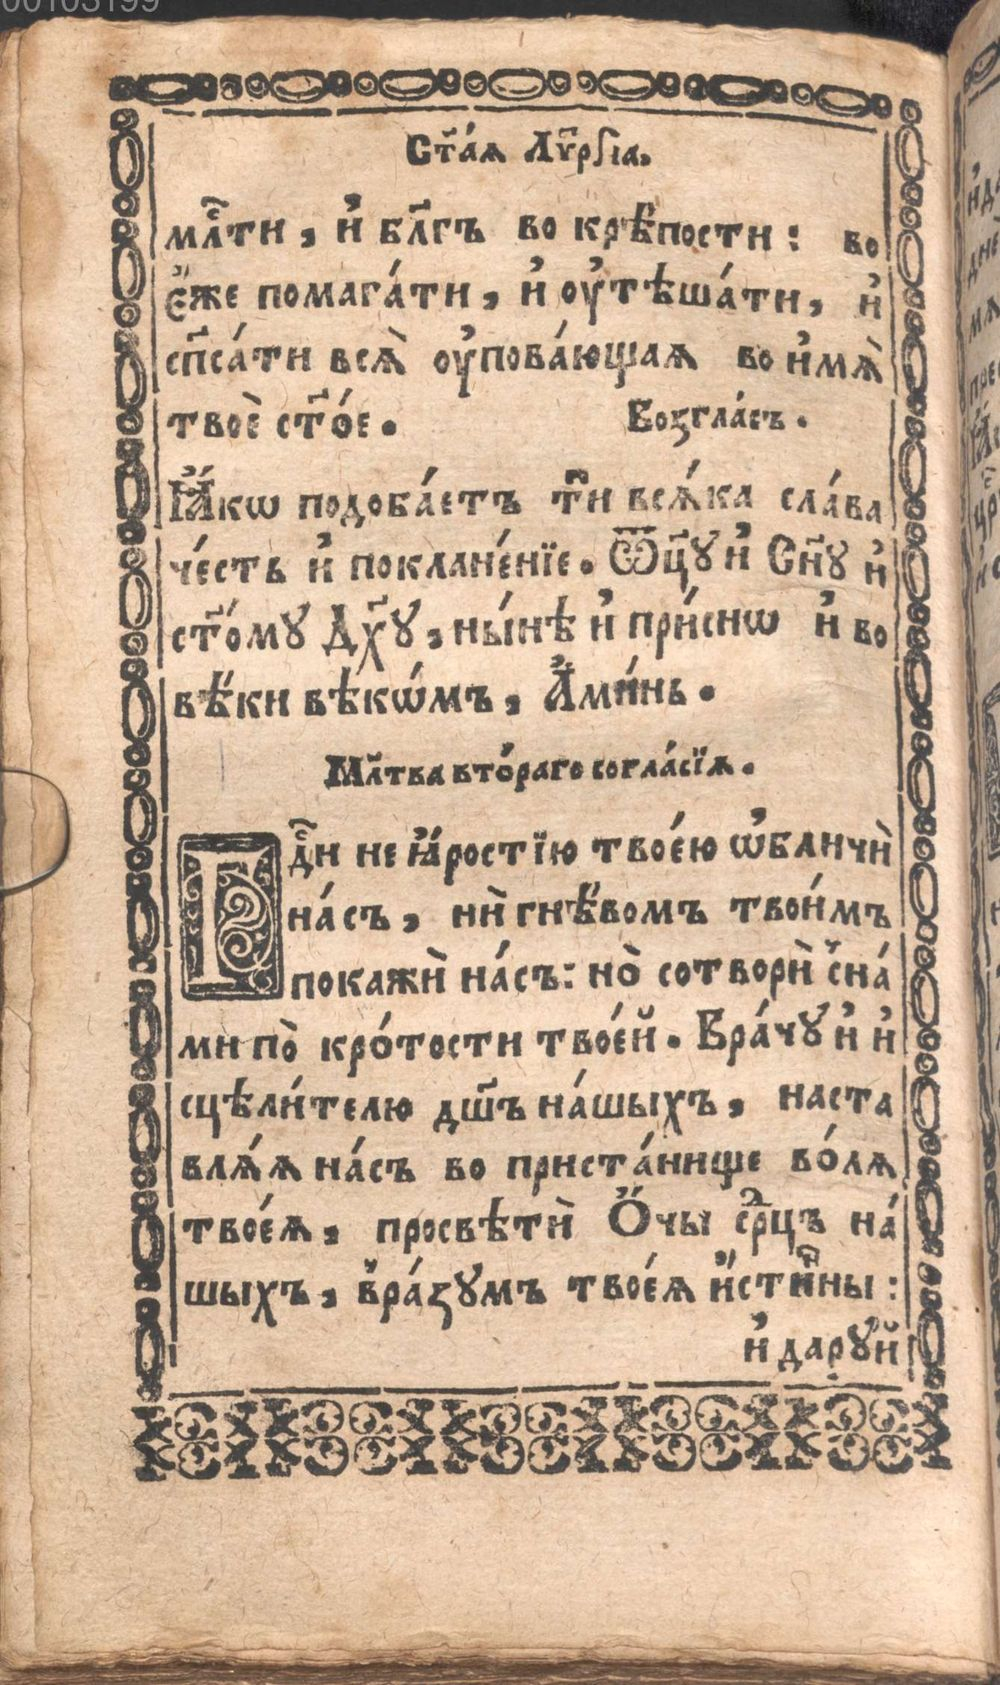 00103199
Ст҃а́ѧ Лѵ҃рꙅїа,
мл҃ти , и҆ бл҃гъ во крѣ́пости : во
є҆́же помага́ти , и҆ оу҆тѣша́ти , и҆
сп҃са́ти всѧ̀ оу҆пова́ющаѧ во и҆мѧ̀
твоѐ ст҃о́е . Возгла́съ .
Ꙗ҆́кѡ подоба́етъ тѝ всѧ́ка сла́ва
че́сть и҆ поклане́нїе . Ѿц҃ꙋ и҆ Сн҃ꙋ и҆
ст҃о́мꙋ Дх҃ꙋ , ны́нѣ и҆ при́снѡ и҆ во
вѣ́ки вѣкѡ́мъ , А҆ми́нь .
Мл҃тва вто́раго согла́сїѧ .
Гдⷭ҇и не ꙗ҆́ростїю твое́ю ѡ҆бличѝ
на́съ , нѝ гнѣ́вомъ твои́мъ
покажѝ на́съ : но̀ сотворѝ с̾на́
ми по̀ кро́тости твое́й . Вра́чꙋ и҆ и҆
сцѣли́телю дш҃ъ на́шыхъ , наста
влѧ́ѧ на́съ во приста́нище во́лѧ
твоеѧ̀ , просвѣтѝ Ѻ҆́чы срⷣцъ на́
шыхъ , в̾ра́зꙋмъ твоеѧ̀ и҆́стинны :
и҆ дарꙋ́й